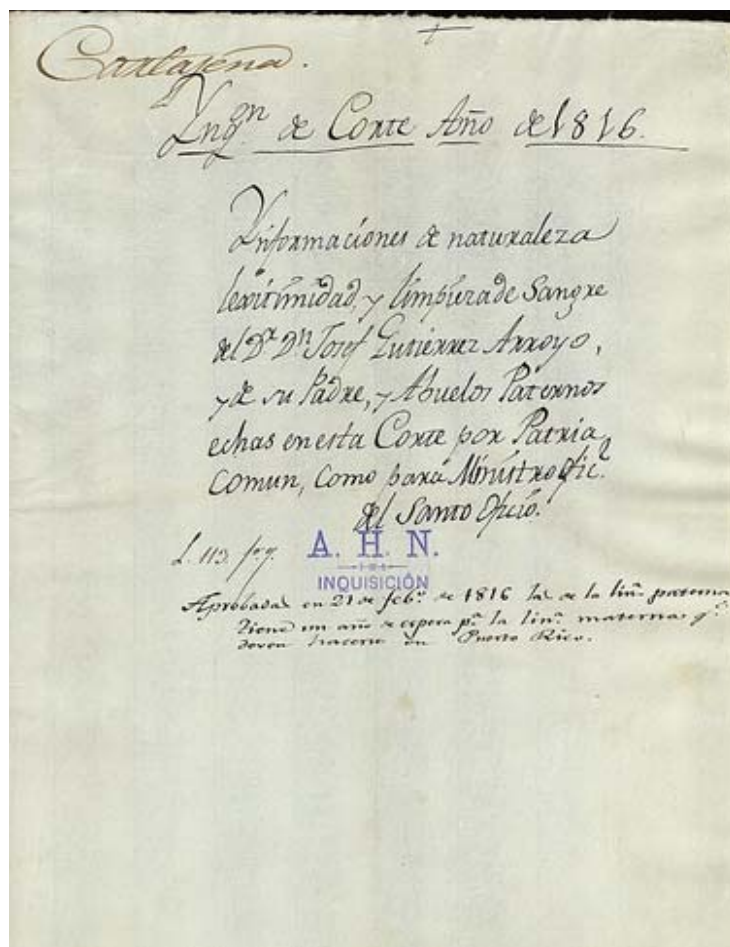 Cartajena.
Ynqⁿ. de Corte Año de 1816.
Ynformaciones de naturaleza
lexitimidad, y limpieza de Sangre
del Dr. Dn. Josef Gutierrez Arroyo,
y de su Padre, y Abuelos Paternos
echas en esta Corte por Patria
Comun, Como para Ministro ofic.l
del Santo Oficio.
L. 113. fo. 9.
A. H. N.
INQUISICIÓN
Aprobadas en 21 de feb.o de 1816 las de la lin.a paterna
Tiene un año de espera p.a la lin.a materna q.e
deven hacerse en Puerto Rico.